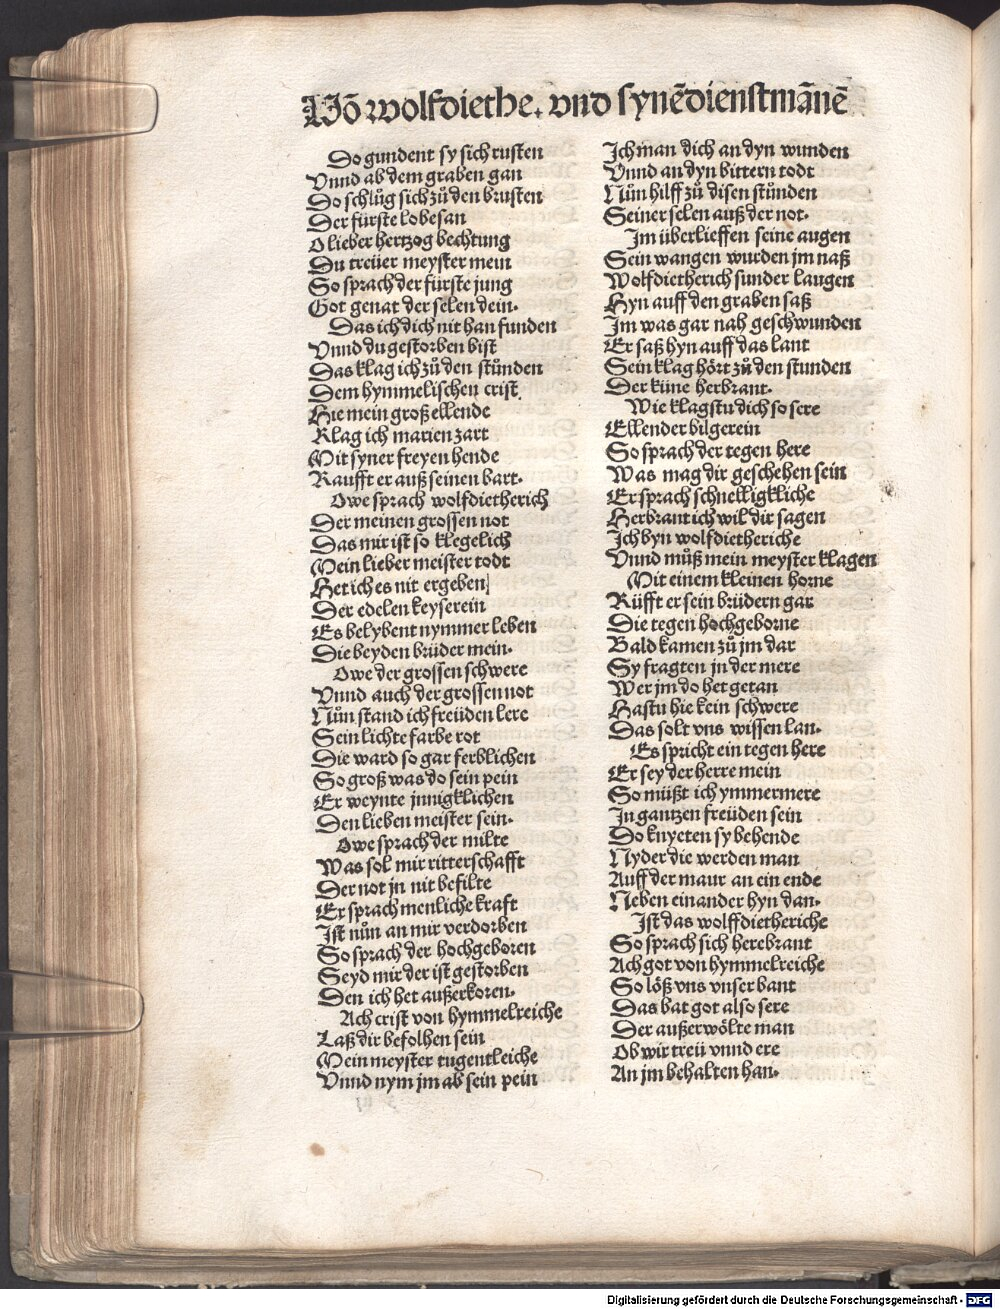 Võ wolfdiethe. vnd synẽdienstmãnẽ
Do gundent sy sich rusten
Vnnd ab dem graben gan
Do schlůg sich zů den brusten
Der fürste lobesan
O lieber hertzog bechtung
Du treüer meyster mein
So sprach der fürste jung
Got genat der selen dein.
Das ich dich nit han funden
Vnnd du gestorben bist
Das klag ich zů den stůnden
Dem hymmelischen crist
Hie mein groß ellende
Klag ich marien zart
Mit syner freyen hende
Raufft er auß seinen bart.
Owe sprach wolfdietherich
Der meinen grossen not
Das mir ist so klegelich
Mein lieber meister todt
Het ich es nit ergeben
Der edelen keyserein
Es belybent nymmer leben
Die beyden brüder mein.
Owe der grossen schwere
Vnnd auch der grossen not
Nůn stand ich freüden lere
Sein lichte farbe rot
Die ward so gar ferblichen
So groß was do sein pein
Er weynte jnnigklichen
Den lieben meister sein.
Owe sprach der milte
Was sol mir ritterschafft
Der not jn nit befilte
Er sprach menliche kraft
Ist nůn an mir verdorben
So sprach der hochgeboren
Seyd mir der ist gestorben
Den ich het außerkoren.
Ach crist von hymmelreiche
Laß dir befolhen sein
Mein meyster tugentleiche
Vnnd nym jm ab sein pein
Ich man dich an dyn wunden
Vnnd an dyn bittern todt
Nůn hilff zů disen stůnden
Seiner selen auß der not.
Im überlieffen seine augen
Sein wangen wurden jm naß
Wolfdietherich sunder laugen
Hyn auff den graben saß
Im was gar nah geschwunden
Er saß hyn auff das lant
Sein klag hört zů den stunden
Der küne herbrant.
Wie klagstu dich so sere
Ellender bilgerein
So sprach der tegen here
Was mag dir geschehen sein
Er sprach schnelligkliche
Herbrant ich wil dir sagen
Ich byn wolfdietheriche
Vnnd můß mein meyster klagen
Mit einem kleinen horne
Růfft er sein brüdern gar
Die tegen hochgeborne
Bald kamen zů jm dar
Sy fragten jn der mere
Wer jm do het getan
Hastu hie kein schwere
Das solt vns wissen lan.
Es spricht ein tegen here
Er sey der herre mein
So můßt ich ymmermere
In gantzen freüden sein
Do knyeten sy behende
Nyder die werden man
Auff der maur an ein ende
Neben einander hyn dan.
Ist das wolffdietheriche
So sprach sich herebrant
Ach got von hymmelreiche
So löß vns vnser bant
Das bat got also sere
Der außerwölte man
Ob wir treü vnnd ere
An jm behalten han.
Digitalisierung gefördert durch die Deutsche Forschungsgemeinschaft - DFG